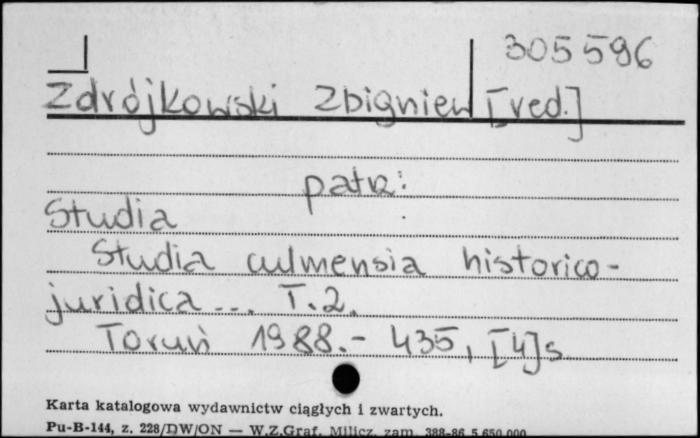 305596
Zdrójkowski Zbigniew [red.]
patrz:
Studia
Studia culmensia historico-
juridica... T.2.
Toruń 1988.- 435, [4]s.
Karta katalogowa wydawnictw ciągłych i zwartych.
Pu-B-144, z. 228/DW/ON — W.Z.Graf. Milicz, zam. 388-86 5.650.000